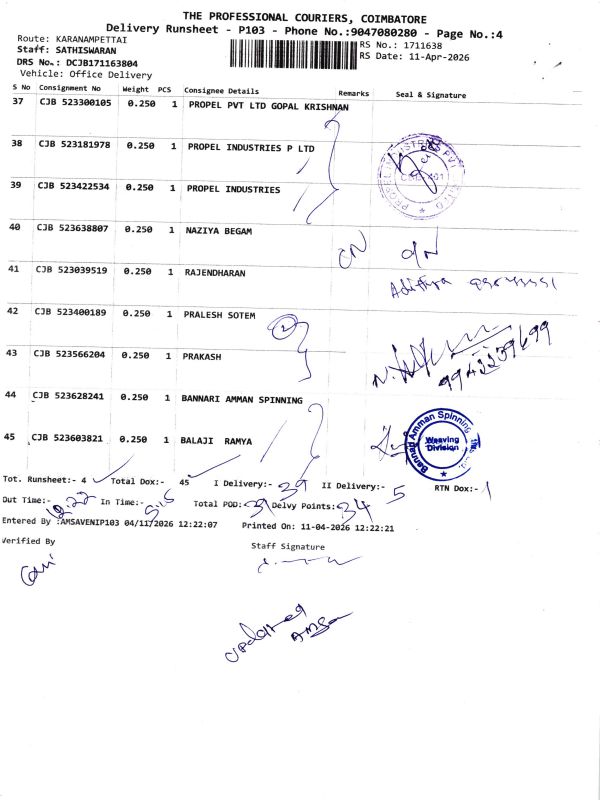 THE PROFESSIONAL COURIERS, COIMBATORE
Delivery Runsheet - P103 - Phone No.:9047080280 - Page No.:4
Route: KARANAMPETTAI
RS No.: 1711638
Staff: SATHISWARAN
RS Date: 11-Apr-2026
DRS No.: DCJB171163804
Vehicle: Office Delivery
S No Consignment No Weight PCS Consignee Details Remarks Seal & Signature
37 CJB 523300105 0.250 1 PROPEL PVT LTD GOPAL KRISHNAN
38 CJB 523181978 0.250 1 PROPEL INDUSTRIES P LTD
39 CJB 523422534 0.250 1 PROPEL INDUSTRIES
40 CJB 523638807 0.250 1 NAZIYA BEGAM CN
41 CJB 523039519 0.250 1 RAJENDHARAN Adithya
42 CJB 523400189 0.250 1 PRALESH SOTEM 2
43 CJB 523566204 0.250 1 PRAKASH 9942239699
44 CJB 523628241 0.250 1 BANNARI AMMAN SPINNING
Bannari Amman Spinning
Weaving
Division
45 CJB 523603821 0.250 1 BALAJI RAMYA
Tot. Runsheet:- 4 Total Dox:- 45 I Delivery:- 39 II Delivery:- 5 RTN Dox:- 1
Out Time:- 12.22 In Time:- 5.15 Total POD: 39 Delvy Points: 34
Entered By :AMSAVENIP103 04/11/2026 12:22:07 Printed On: 11-04-2026 12:22:21
Verified By
Staff Signature
updated
Amsa